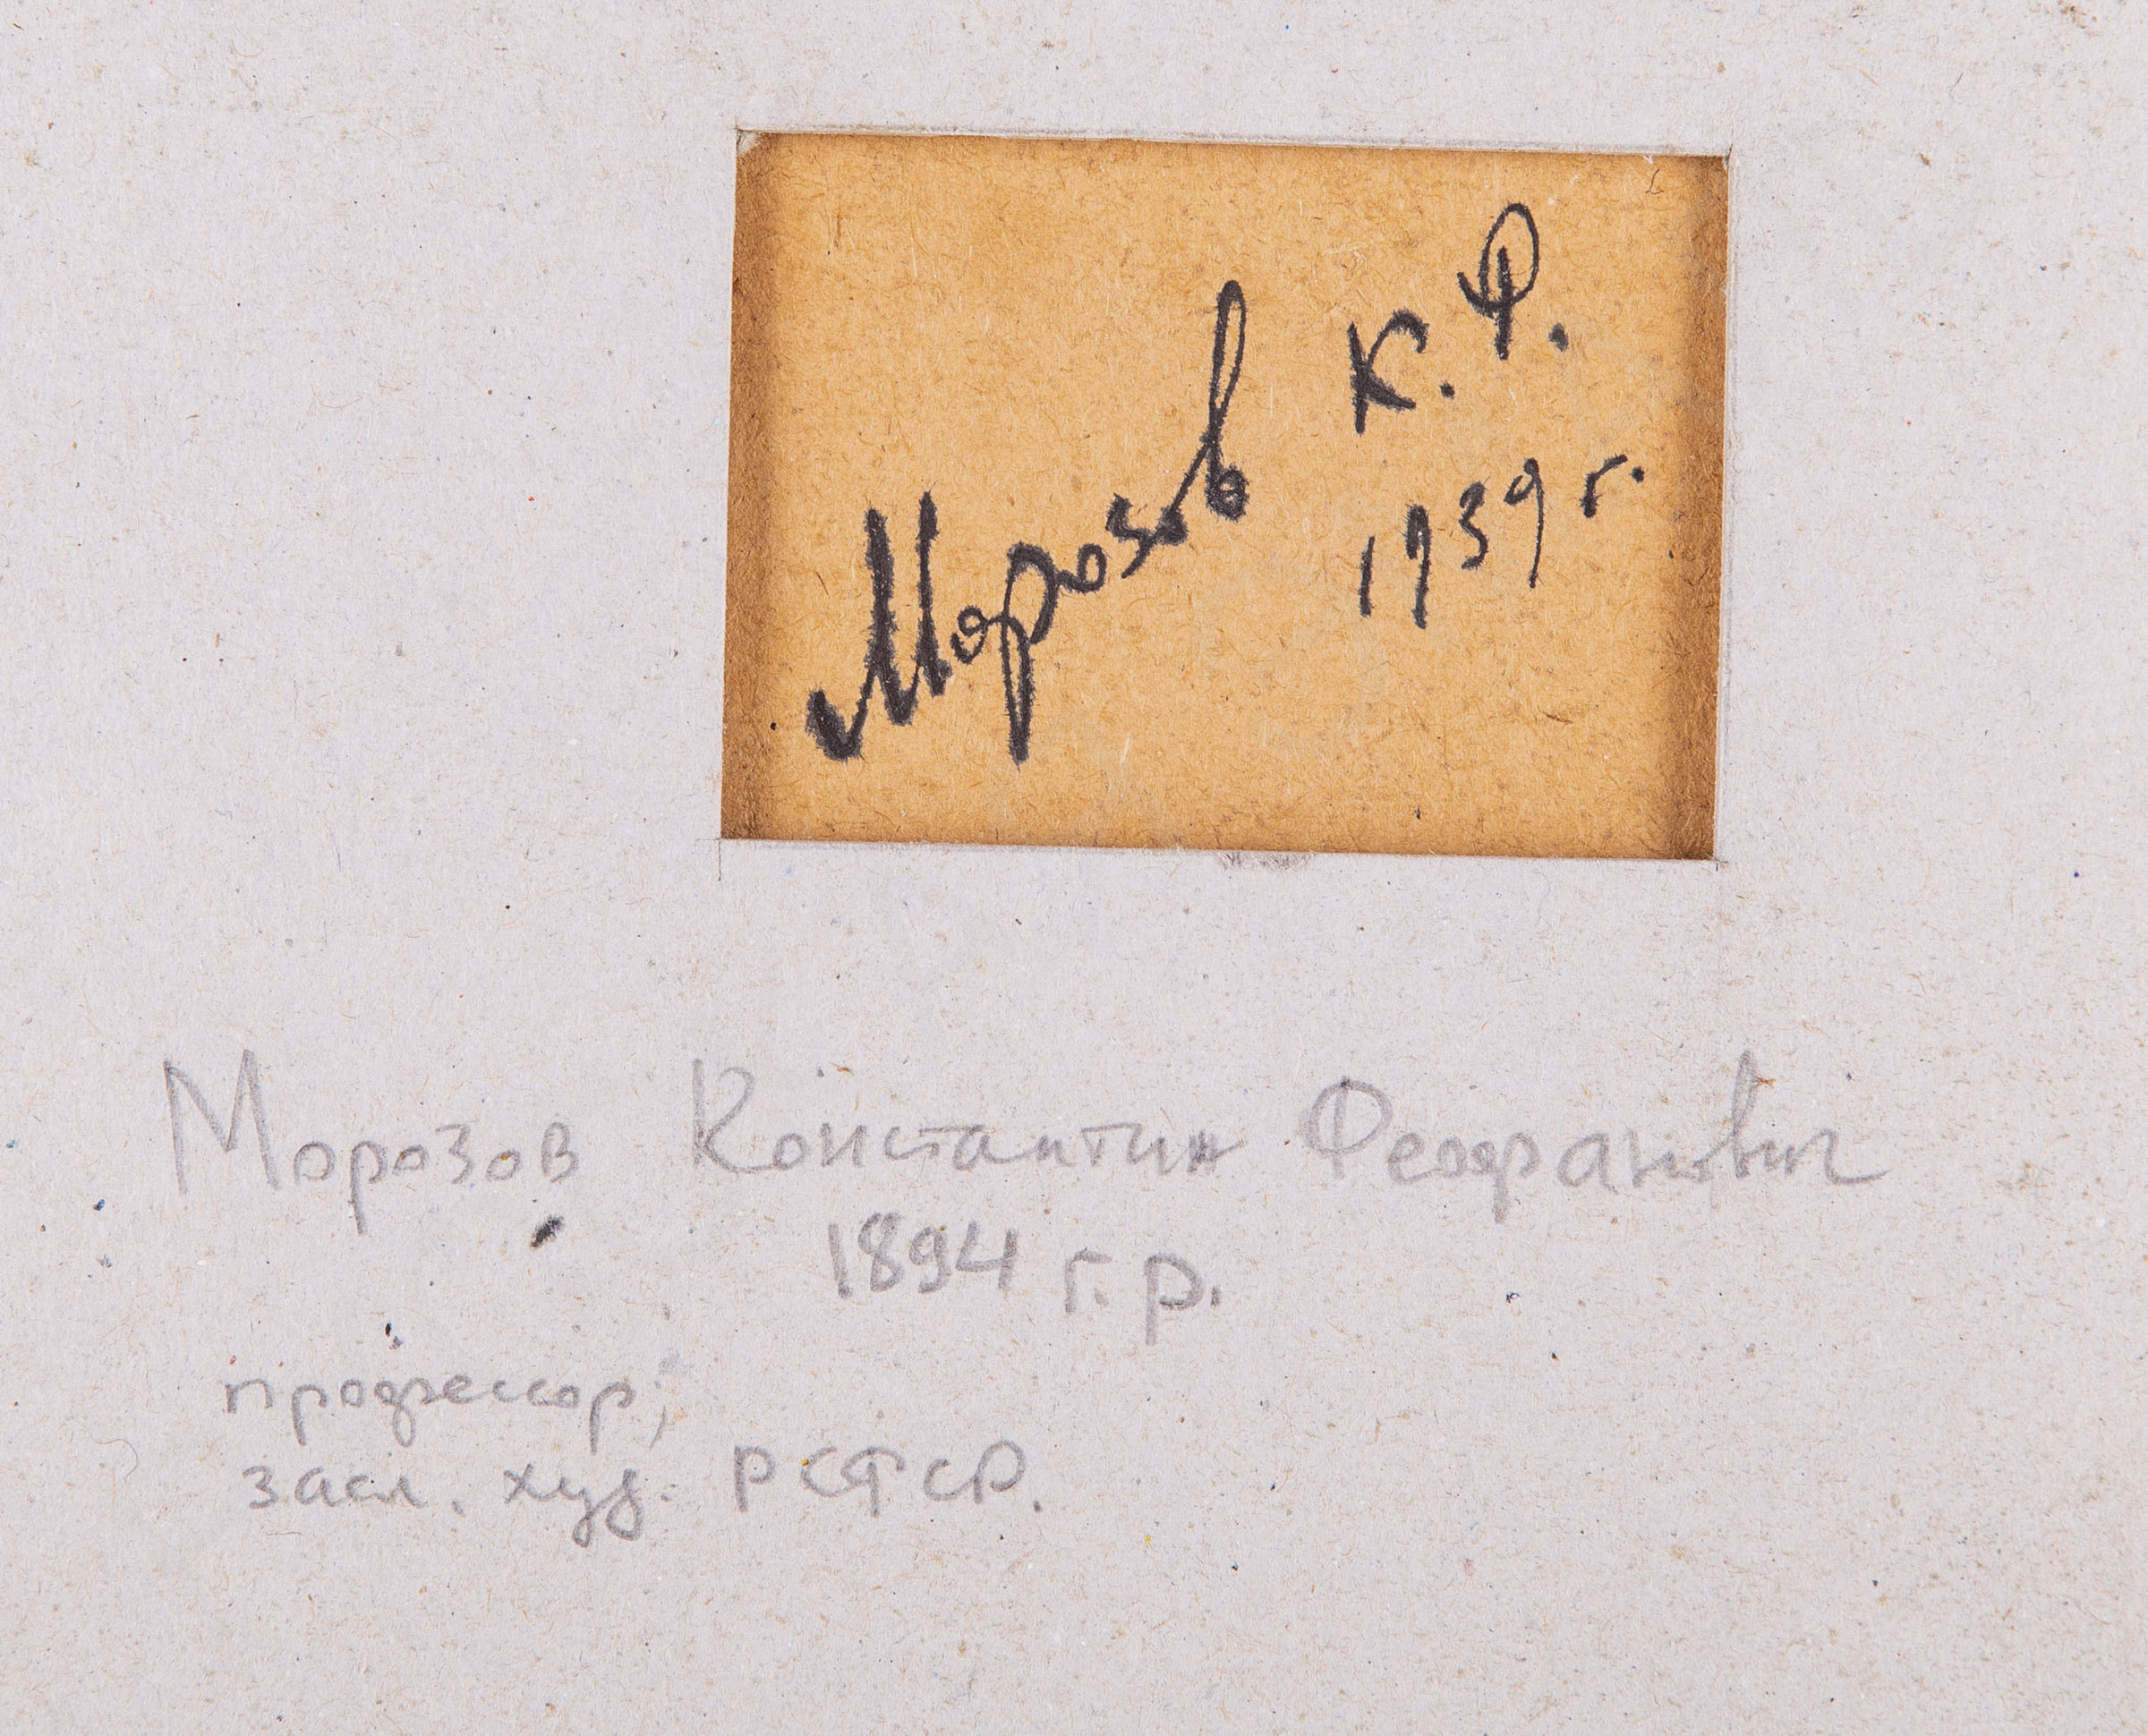 Морозов К. Ф.
1939 г.
Морозов Константин Феофанович
1894 г. р.
профессор;
засл. худ. РСФСР.